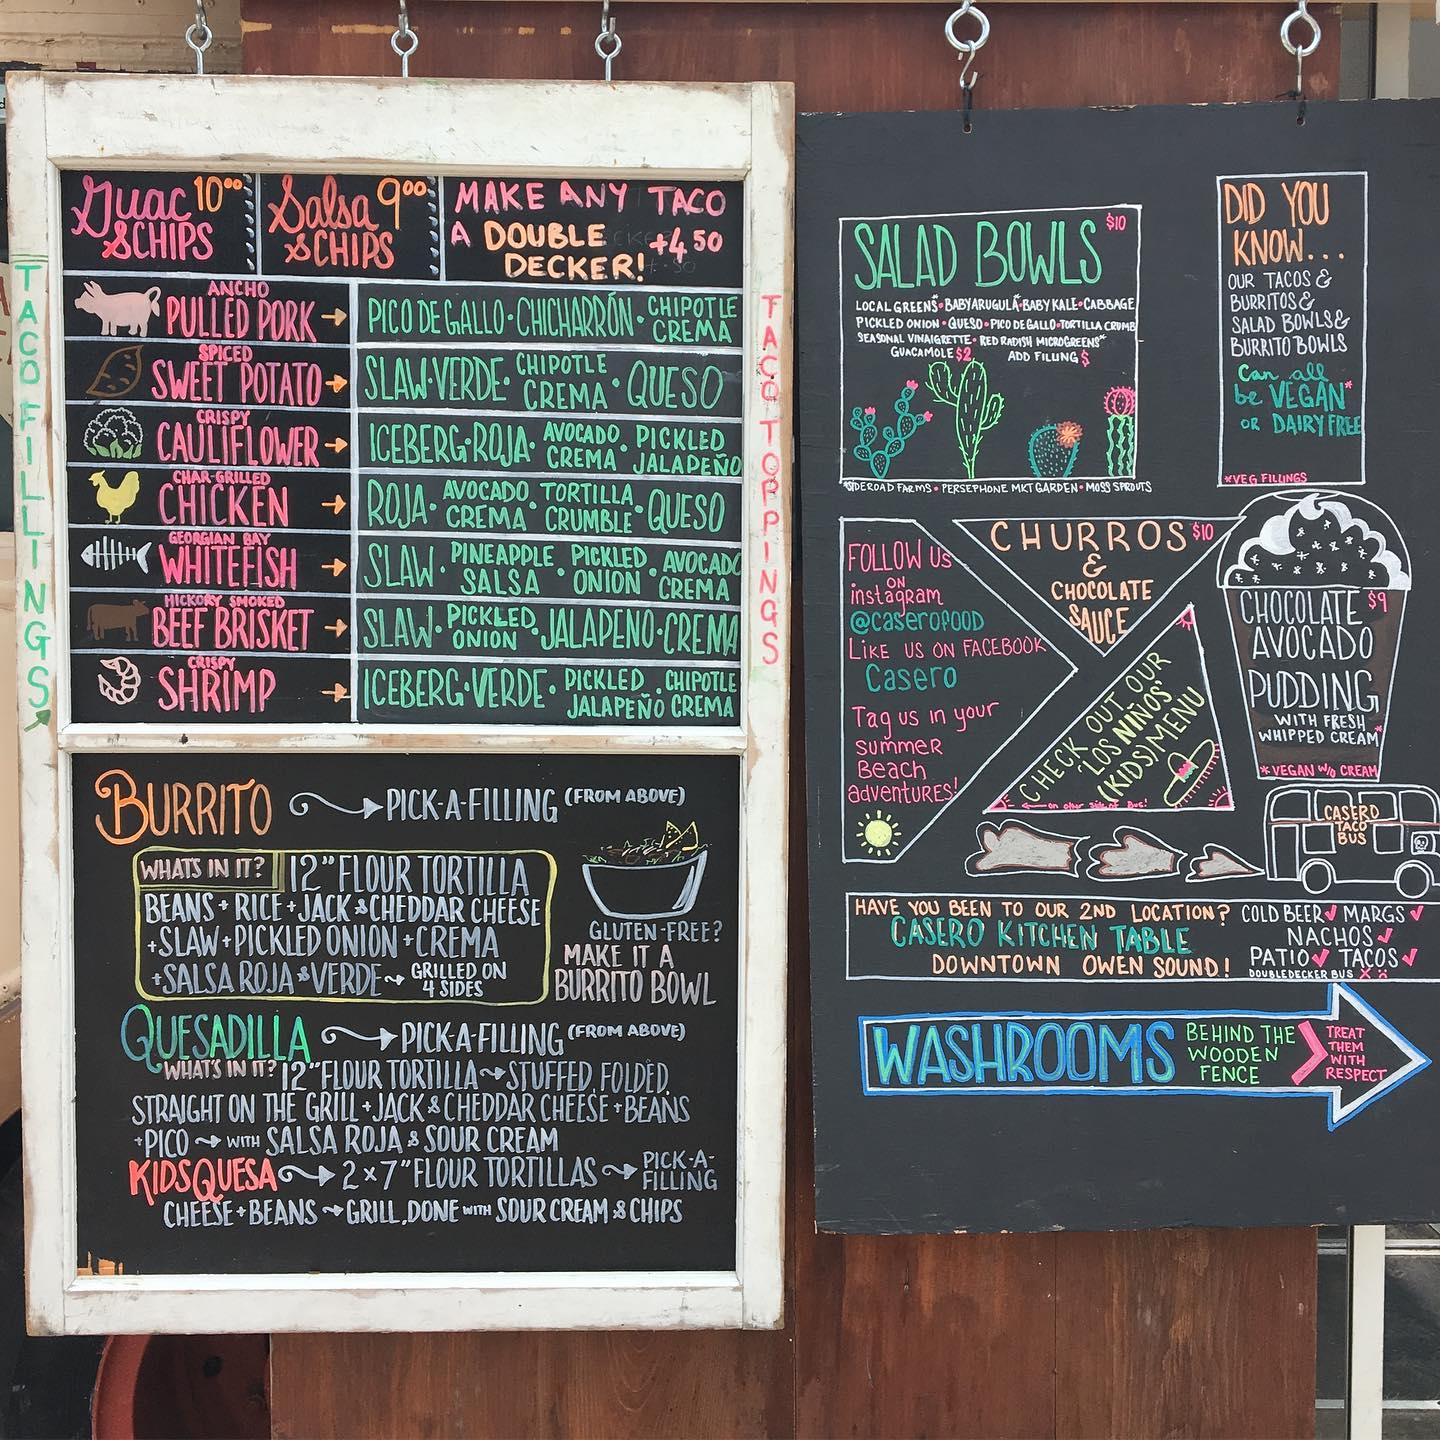 Guac 10⁰⁰
& CHIPS
Salsa 9⁰⁰
& CHIPS
MAKE ANY TACO
A DOUBLE +4.50
DECKER!
TACO FILLINGS
TACO TOPPINGS
ANCHO
PULLED PORK
PICO DE GALLO • CHICHARRÓN • CHIPOTLE CREMA
SPICED
SWEET POTATO
SLAW • VERDE • CHIPOTLE CREMA • QUESO
CRISPY
CAULIFLOWER
ICEBERG • ROJA • AVOCADO CREMA • PICKLED JALAPEÑO
CHAR-GRILLED
CHICKEN
ROJA • AVOCADO CREMA • TORTILLA CRUMBLE • QUESO
GEORGIAN BAY
WHITEFISH
SLAW • PINEAPPLE SALSA • PICKLED ONION • AVOCADO CREMA
HICKORY SMOKED
BEEF BRISKET
SLAW • PICKLED ONION • JALAPENO • CREMA
CRISPY
SHRIMP
ICEBERG • VERDE • PICKLED JALAPEÑO • CHIPOTLE CREMA
BURRITO PICK-A-FILLING (FROM ABOVE)
WHATS IN IT? 12" FLOUR TORTILLA
BEANS + RICE + JACK & CHEDDAR CHEESE
+ SLAW + PICKLED ONION + CREMA
+ SALSA ROJA & VERDE → GRILLED ON 4 SIDES
GLUTEN-FREE?
MAKE IT A
BURRITO BOWL
QUESADILLA PICK-A-FILLING (FROM ABOVE)
WHAT'S IN IT? 12" FLOUR TORTILLA → STUFFED, FOLDED,
STRAIGHT ON THE GRILL + JACK & CHEDDAR CHEESE + BEANS
+ PICO → WITH SALSA ROJA & SOUR CREAM
KIDSQUESA → 2 x 7" FLOUR TORTILLAS → PICK-A-FILLING
CHEESE + BEANS → GRILL, DONE WITH SOUR CREAM & CHIPS
SALAD BOWLS $10
LOCAL GREENS* • BABY ARUGULA* • BABY KALE • CABBAGE
PICKLED ONION • QUESO • PICO DE GALLO • TORTILLA CRUMB
SEASONAL VINAIGRETTE • RED RADISH MICROGREENS*
GUACAMOLE $2 ADD FILLING $
*SIDEROAD FARMS • PERSEPHONE MKT GARDEN • MOSS SPROUTS
DID YOU
KNOW...
OUR TACOS &
BURRITOS &
SALAD BOWLS &
BURRITO BOWLS
Can all
be VEGAN*
OR DAIRY FREE
*VEG FILLINGS
FOLLOW Us
ON
instagram
@caserofood
LIKE US ON FACEBOOK
Casero
Tag us in your
summer
Beach
adventures!
CHURROS $10
&
CHOCOLATE
SAUCE
CHECK OUT OUR
'LOS NIÑOS'
(KIDS) MENU
on other side of Bus!
CHOCOLATE $9
AVOCADO
PUDDING
WITH FRESH
WHIPPED CREAM*
*VEGAN W/O CREAM
CASERO
TACO
BUS
HAVE YOU BEEN TO OUR 2ND LOCATION?
CASERO KITCHEN TABLE
DOWNTOWN OWEN SOUND!
COLD BEER ✓ MARGS ✓
NACHOS ✓
PATIO ✓ TACOS ✓
DOUBLEDECKER BUS X
WASHROOMS
BEHIND THE
WOODEN
FENCE
TREAT
THEM
WITH
RESPECT